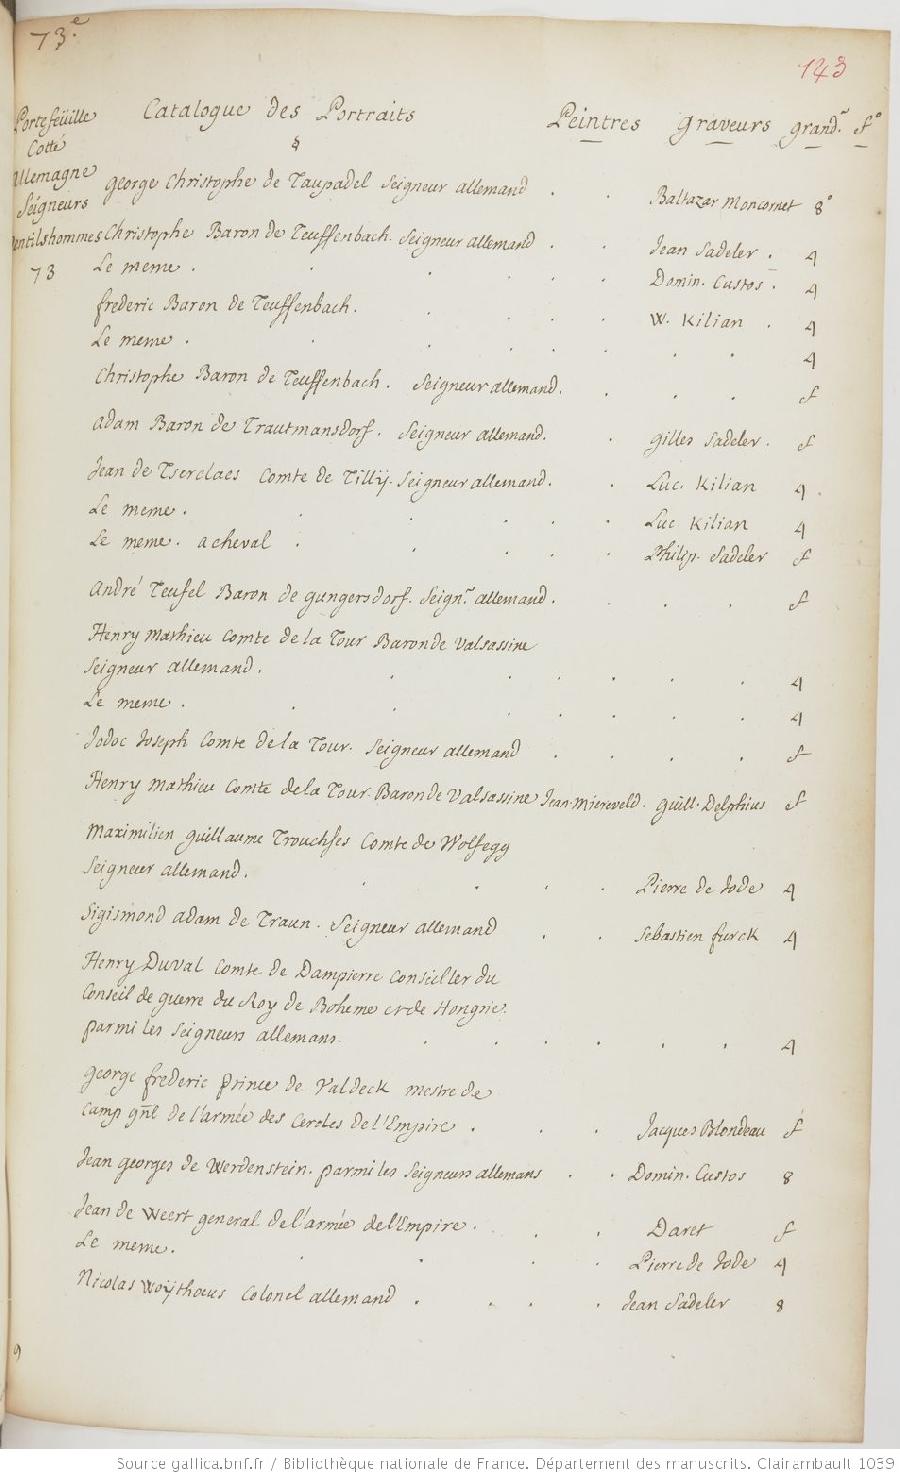 73.e
143
Portefeüille Catalogue des Portraits Peintres graveurs grand.r fo
Cotté
Allemagne
Seigneurs
gentilshommes
73
George Christophe de Taupadel Seigneur allemand . . Baltazar Moncornet 8o
Christophe Baron de Teuffenbach. Seigneur allemand . . Jean Sadeler . 4
Le meme . . . . . Domin. Custos . 4
frederic Baron de Teuffenbach. . . . W. Kilian . 4
Le meme . . . . . . . 4
Christophe Baron de Teuffenbach. Seigneur allemand. . . . f
adam Baron de Trautmansdorf. Seigneur allemand. . Gilles Sadeler . f
Jean de Tserclaes Comte de Tillÿ. Seigneur allemand. . Luc. Kilian 4 .
Le meme . . . . . Luc Kilian 4
Le meme . a cheval . . . . Philip. Sadeler f
André Teufel Baron de gungersdorf. Seign.r allemand. . . . f
Henry Mathieu Comte de la Tour Baron de Valsassine
Seigneur allemand. . . . . . 4
Le meme . . . . . . . 4
Jodoc Joseph Comte de la Tour. Seigneur allemand . . . . f
Henry Mathieu Comte de la Tour Baron de Valsassine Jean Miereveld. Guill. Delphius f
Maximilien guillaume Trouchses Comte de Wolfegg
Seigneur allemand. . . . . Pierre de Jode 4
Sigismond adam de Traun. Seigneur allemand . . Sebastien furck 4
Henry Duval Comte de Dampierre Conseiller du
Conseil de guerre du Roy de Boheme et de Hongrie.
parmi les Seigneurs allemans . . . . . . 4
George frederic Prince de Valdeck mestre de
Camp gñl de l'armée des Cercles de l'Empire . . . Jacques Blondeau f
Jean georges de Werdenstein. parmi les Seigneurs allemans . . Domin. Custos 8
Jean de Weert general de l'armée de l'Empire . . . Daret f
Le meme. . . . . Pierre de Jode 4
Nicolas Woÿthoeus Colonel allemand . . . . Jean Sadeler 8
Source gallica.bnf.fr / Bibliothèque nationale de France. Département des manuscrits. Clairambault 1039